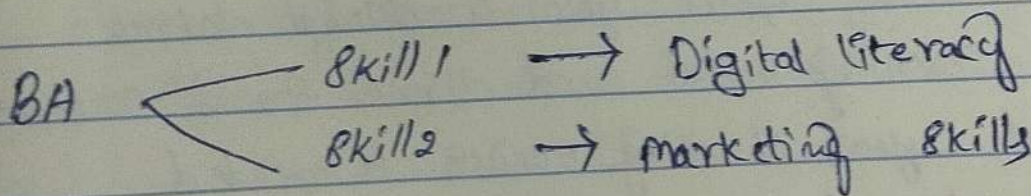 BA
Skill 1 → Digital literacy
Skill 2 → Marketing Skills